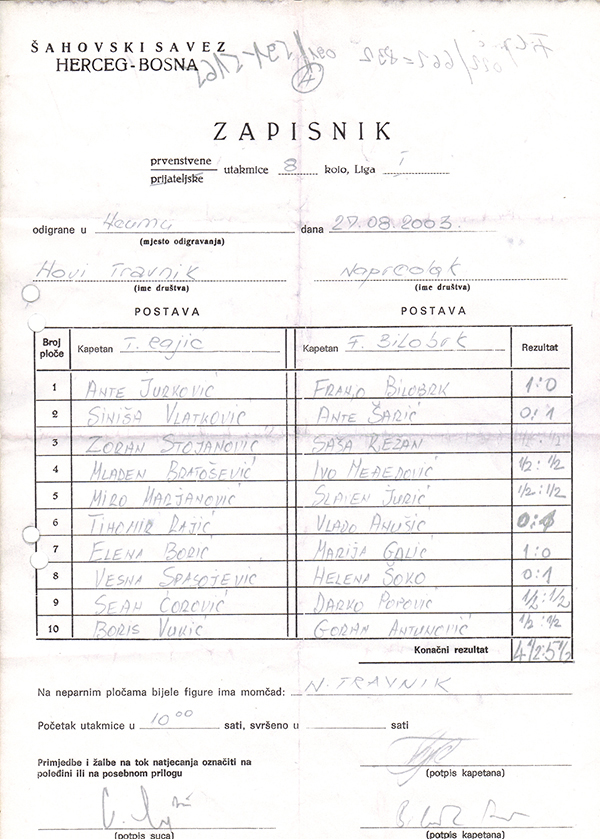 ŠAHOVSKI SAVEZ
HERCEG-BOSNA
ZAPISNIK
prvenstvene
prijateljske
utakmice 8 kolo, Liga I
odigrane u Neumu dana 27.08.2003.
(mjesto odigravanja)
Novi Travnik Napredak
(ime društva) (ime društva)
POSTAVA POSTAVA
Broj ploče Kapetan T. Rajić Kapetan F. BILOBRK Rezultat
1 ANTE JURKOVIĆ FRANJO BILOBRK 1:0
2 SINIŠA VLATKOVIĆ ANTE ŠARIĆ 0:1
3 ZORAN STOJANOVIĆ SAŠA REZAN ½:½
4 MLADEN BRATOŠEVIĆ IVO 1/2:1/2
5 MIRO MARJANOVIĆ SLAVEN JURIĆ 1/2:1/2
6 TIHOMIR RAJIĆ VLADO ANUŠIĆ 0:1
7 ELENA BORIĆ MARIJA GALIĆ 1:0
8 VESNA SPASOJEVIĆ HELENA ŠOKO 0:1
9 SEAN ĆOROVIĆ DARKO POPOVIĆ 1/2:1/2
10 BORIS VUKIĆ GORAN ANTUNOVIĆ 1/2:1/2
Konačni rezultat 4 1/2:5 1/2
Na neparnim pločama bijele figure ima momčad: N. TRAVNIK
Početak utakmice u 10 00 sati, svršeno u sati
Primjedbe i žalbe na tok natjecanja označiti na
poleđini ili na posebnom prilogu
(potpis kapetana)
(potpis suca) (potpis kapetana)